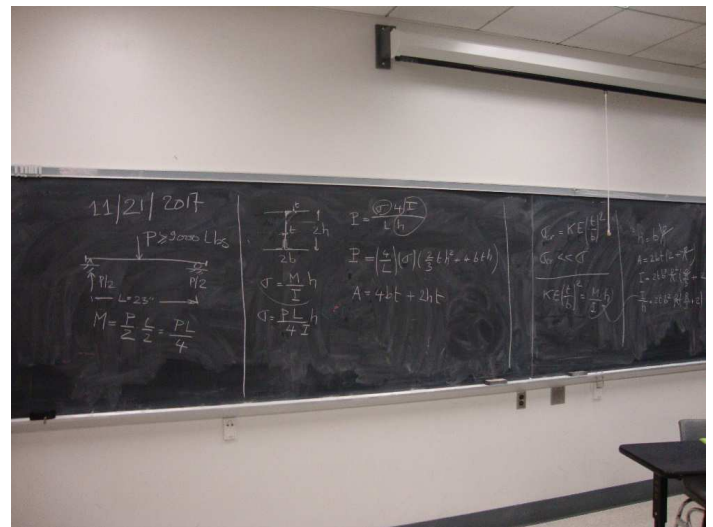 11/21/2017
P≥9000 Lbs
P/2
P/2
L=23"
M = P/2 L/2 = PL/4
t
t
2h
2b
σ = M/I h
σ = PL/4I h
P = σ4I/Lh
P = (4/L)(σ)(2/3 th² + 4bth)
A = 4bt + 2ht
σcr = KE(t/b)²
σcr << σ
KE(t/b)² = M/I h